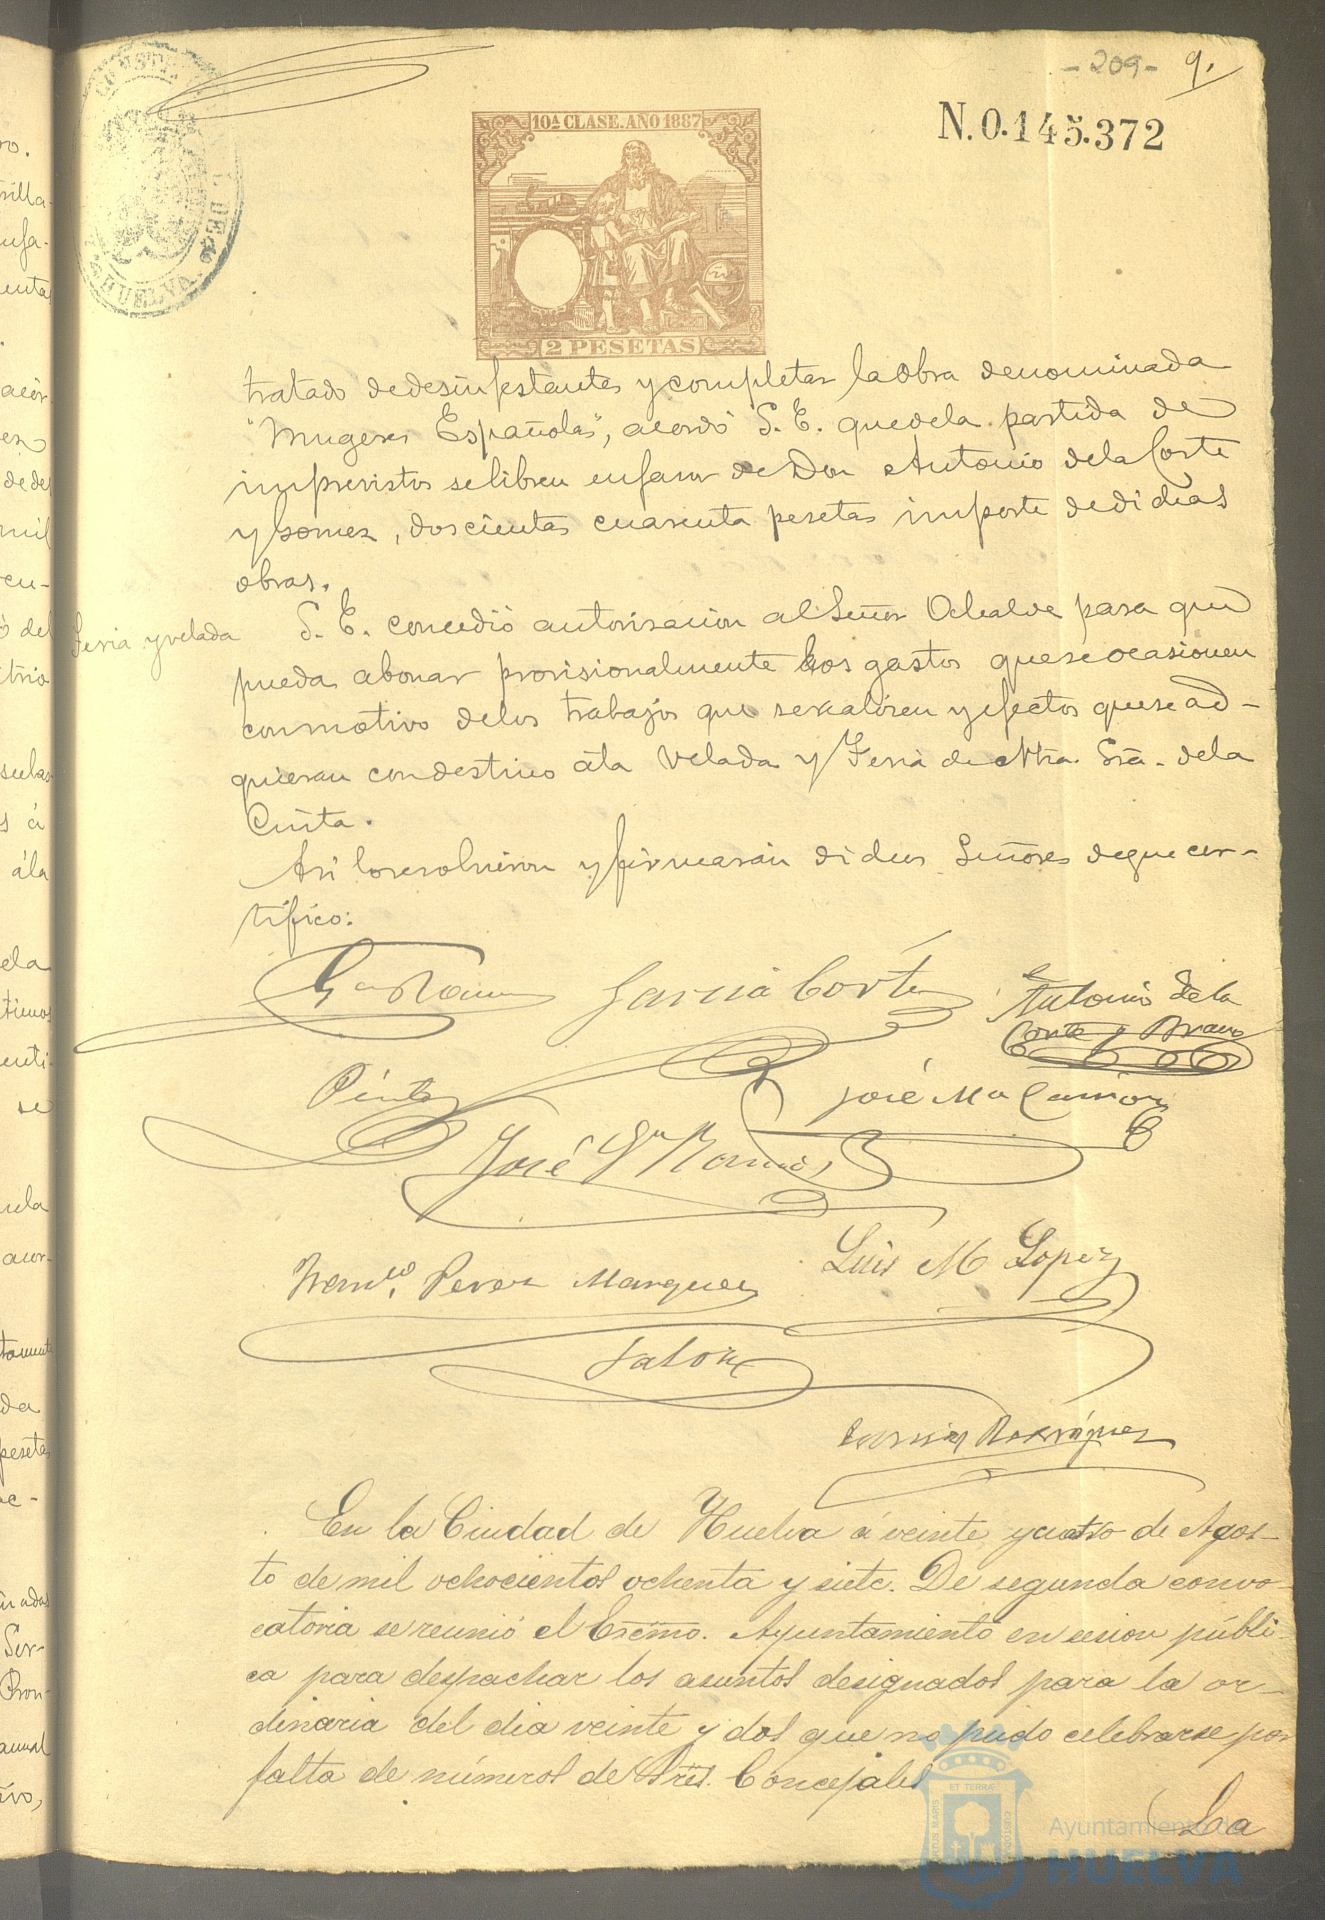 -209- 9.
N. 0.145.372
10ª CLASE. AÑO 1887
2 PESETAS
HUELVA
tratado de desinfestantes y completar la obra denominada
"Mugeres Españolas", acordó S. E. que de la partida de
imprevistos se libren en favor de Don Antonio de la Corte
y Gomez, doscientas cuarenta pesetas importe de dichas
obras.
Feria y velada
S. E. concedió autorizacion al Señor Alcalde para que
pueda abonar provisionalmente los gastos que se ocasionen
con motivo de los trabajos que se realicen y efectos que se ad-
quieran con destino á la Velada y Feria de Ntra. Sra. de la
Cinta.
Asi lo resolvieron y firmarán dichos Señores de que cer-
tifico:
Garcia Cortés
Antonio de la
Corte y Bravo
Pinto
José Mª Carrión
José Gª Ramos
Franco. Perez Marquez
Luis M Lopez
Garcia Rodriguez
En la Ciudad de Huelva á veinte y cuatro de Agos-
to de mil ochocientos ochenta y siete. De segunda convo-
catoria se reunió el Excmo. Ayuntamiento en sesion públi-
ca para despachar los asuntos designados para la or-
dinaria del dia veinte y dos que no pudo celebrarse por
falta de números de Sres. Concejales
La
Ayuntamiento de
HUELVA